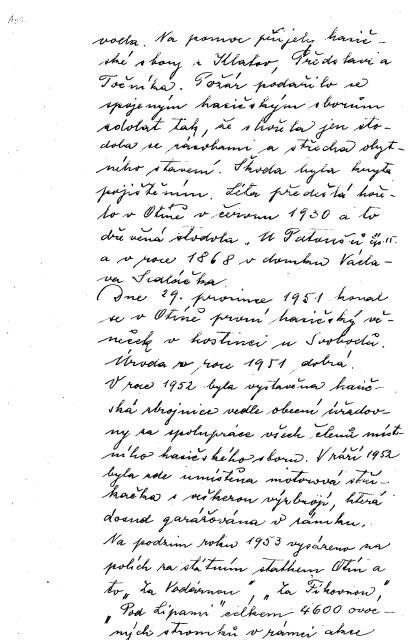 voda. Na pomoc přijely hasič-
ské sbory z Klatov, Předslavi a
Točníka. Požár podařilo se
spojeným hasičským sborům
zdolat tak, že shořela jen sto-
dola se zásobami a střecha obyt-
ného stavení. Škoda byla kryta
pojištěním. Léta předešlá hoře-
lo v Otíně v červnu 1930 a to
dřevěná stodola „U Patanů" čp. 15.
a v roce 1868 v domku Václa-
va Sedláčka.
Dne 29. prosince 1951 konal
se v Otíně první hasičský vě-
neček v hostinci u Svobodů.
Úroda v roce 1951 dobrá.
V roce 1952 byla vystavěna hasič-
ská zbrojnice vedle obecní úřadov-
ny za spolupráce všech členů míst-
ního hasičského sboru. V září 1952
byla zde umístěna motorová stří-
kačka s veškerou výzbrojí, která
dosud garážována v zámku.
Na podzim roku 1953 vysázeno na
polích za státním statkem Otín a
to „Za Vodárnou", „Za Fikovnou",
„Pod Lipami" celkem 4600 ovoc-
ných stromků v rámci akce